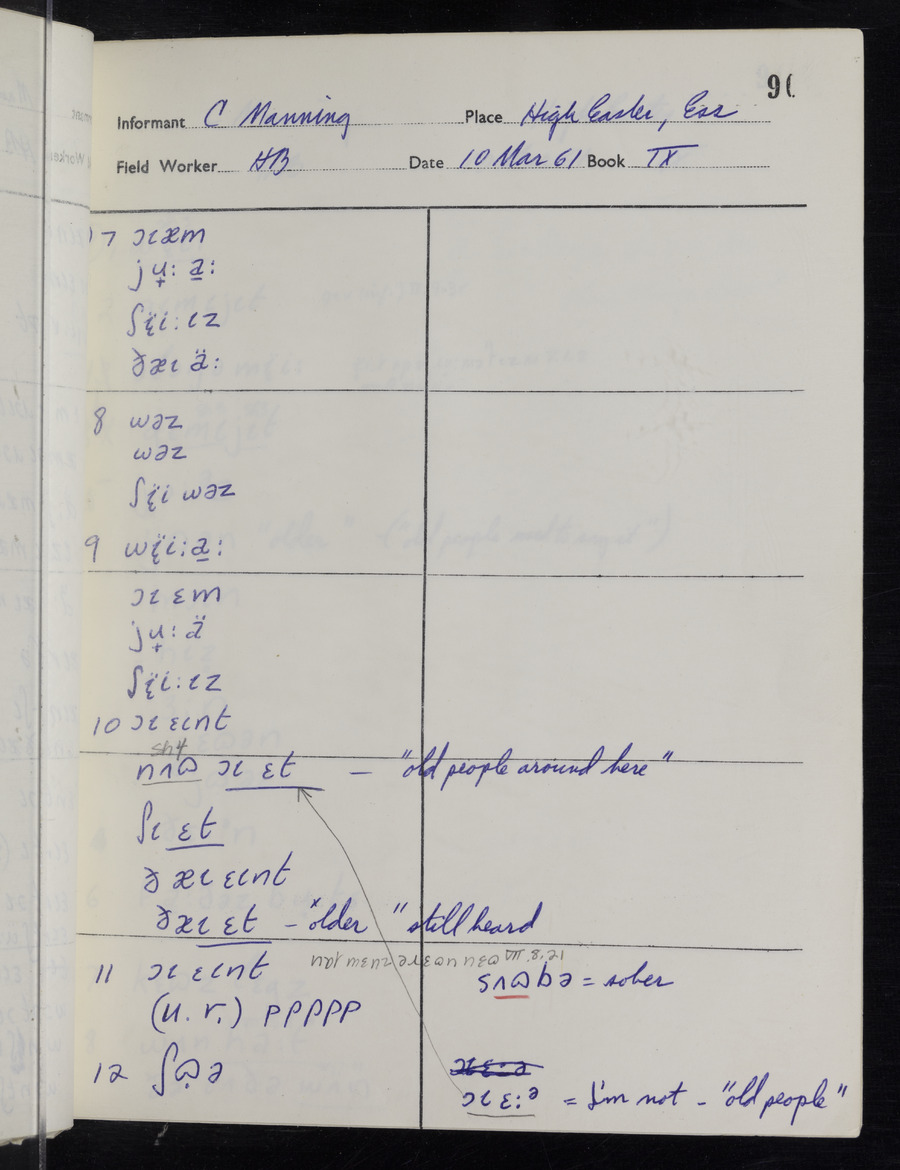 90
Informant C Manning Place High Easter, Ess
Field Worker HB Date 10 Mar 61 Book IX
7 ɔɩæm
jʉ̟: a̠:
ʃɩ̈i:ɩz
ðæɩ ä:
8 wəz
wəz
ʃɩ̈i wəz
9 wɩ̈i:a̠:
ɔɩ ɛm
jʉ̟: ä
ʃɩ̈i:ɩz
10 ɔɩ ɛɩnt
sh4
nʌɷ ɔɩ ɛt — "old people around here"
ʃɩ ɛt
ðæɩ ɛɩnt
ðæɩ ɛt – "older" still heard
11 ɔɩ ɛɩnt
(u. r.) PPPPP
12 ʃɷ̣ə
12.8. III
sʌɷbə = sober
ɔɩɛ:ə
ɔɩ ɛ:ə = I'm not – "old people"